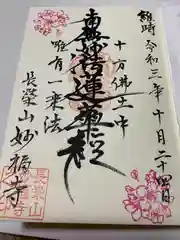 維時令和三年十月二十四日
十方佛土中
南無妙法蓮華経
唯有一乗法
長榮山妙福寺
長榮山